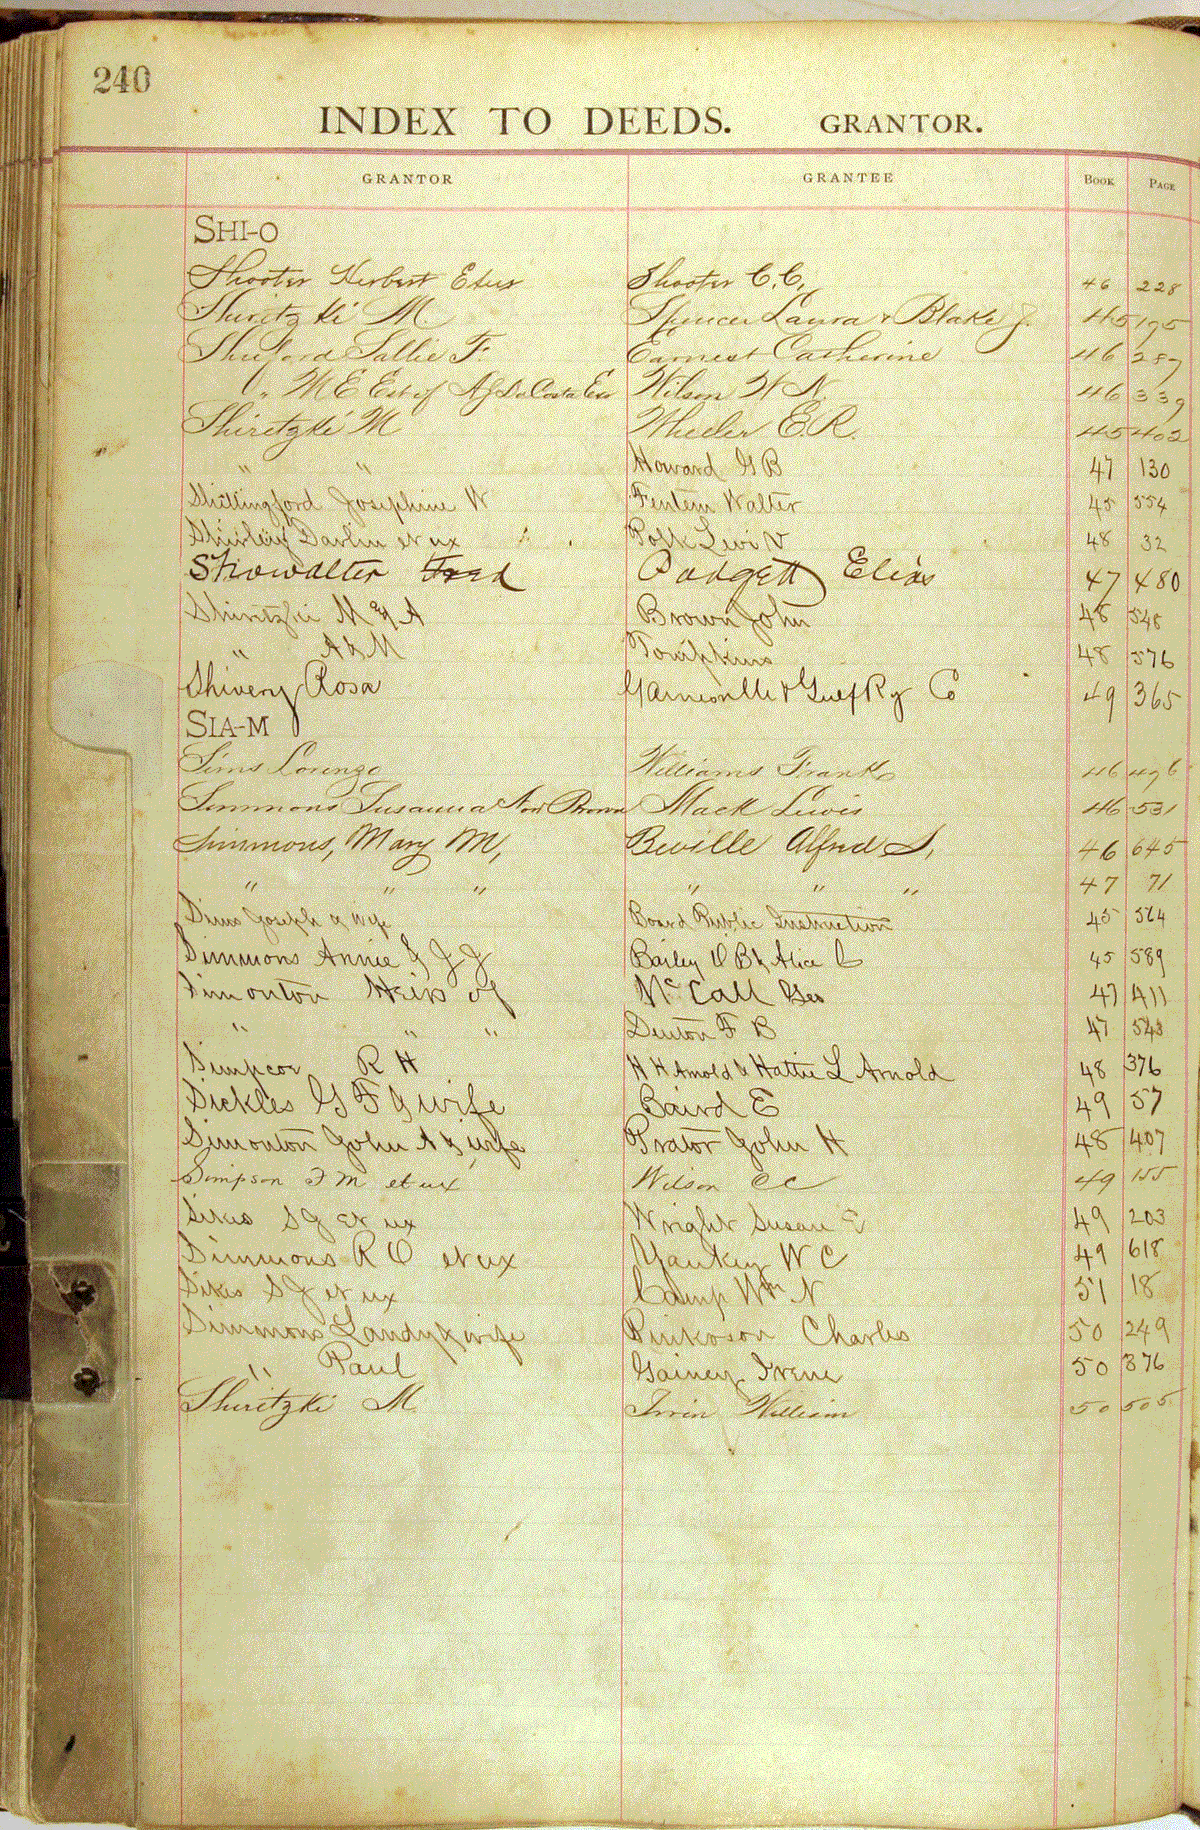 240
INDEX TO DEEDS. GRANTOR.
GRANTOR GRANTEE BOOK PAGE
SHI-O
Shooter Herbert Etux Shooter C. C. 46 228
Shiretzki M. Spencer Laura & Blake J. 45 195
Shuford Sallie F. Earnest Catherine 46 287
" M E Est of A J DaCosta Exr Wilson W N. 46 339
Shiretzki M Wheeler E. R. 45 402
" " Howard G B 47 130
Shillingford Josephine W Fentem Walter 45 554
Shirley Darlin et ux Polk Levi V 48 32
Showalter Fred Padgett Elias 47 480
Shiritzki M & A Brown John 48 548
" A & M Tompkins 48 576
Shivery Rosa Gainesville & Gulf Ry Co 49 365
SIA-M
Sims Lorenzo Williams Frank 46 496
Simmons Susanna Now Brown Mack Lewis 46 531
Simmons, Mary M, Beville Alfred S. 46 645
" " " " " " 47 71
Sims Joseph & Wife Board Public Instruction 45 564
Simmons Annie & J J Bailey D B & Alice C 45 589
Simonton Heirs of McCall Geo 47 411
" " " Denton F B 47 543
Simpson R H H H Arnold & Hattie L Arnold 48 376
Sickles G F & wife Baird E 49 57
Simonton John A & wife Prator John H 48 407
Simpson F M et ux Wilson C C 49 155
Sikes S J et ux Wright Susan E 49 203
Simmons R O et ux Yankey W C 49 618
Sikes S J et ux Camp Wm N 51 18
Simmons Landy & wife Pinkoson Charles 50 249
" Paul Gainey Irene 50 376
Shiretzki M Irvin William 50 505